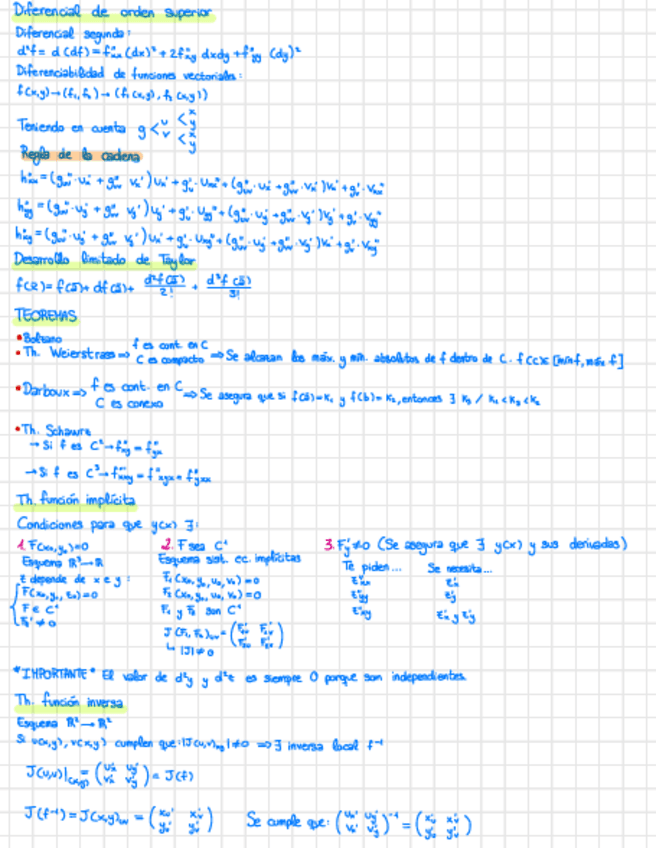 Diferencial de orden superior
Diferencial segunda:
d²f = d(df) = f''xx (dx)² + 2f''xy dxdy + f''yy (dy)²
Diferenciabilidad de funciones vectoriales:
f(x,y)→(f₁,f₂)→(f₁(x,y), f₂(x,y))
Teniendo en cuenta g < u < x y v < x y
Regla de la cadena
h''xx = (g''uu · u'x + g''uv v'x) u'x + g'u · u''xx + (g''uv · u'x + g''vv · v'x) v'x + g'v · v''xx
h''yy = (g''uu · u'y + g''uv v'y) u'y + g'u · u''yy + (g''uv · u'y + g''vv · v'y) v'y + g'v · v''yy
h''xy = (g''uu · u'y + g''uv v'y) u'x + g'u · u''xy + (g''uv · u'y + g''vv · v'y) v'x + g'v · v''xy
Desarrollo limitado de Taylor
f(x̄) = f(ā) + df(ā) + d²f(ā)/2! + d³f(ā)/3!
TEOREMAS
• Bolzano
• Th. Weierstrass ⇒ f es cont. en C
C es compacto ⇒ Se alcanzan los máx. y mín. absolutos de f dentro de C. f(C) ∈ [mín f, máx f]
• Darboux ⇒ f es cont. en C
C es conexo ⇒ Se asegura que si f(a) = K₁ y f(b) = K₂, entonces ∃ K₃ / K₁ < K₃ < K₂
• Th. Schwarz
→ Si f es C² → f''xy = f''yx
→ Si f es C³ → f'''xxy = f'''xyx = f'''yxx
Th. función implícita
Condiciones para que y(x) ∃:
1. F(x₀,y₀)=0 2. F sea C¹ 3. F'y ≠ 0 (Se asegura que ∃ y(x) y sus derivadas)
Esquema R³→R Esquema sist. ec. implícitas Te piden... Se necesita...
z depende de x e y: F₁(x₀,y₀,u₀,v₀)=0 z''xx z'x
F(x₀,y₀,z₀)=0 F₂(x₀,y₀,u₀,v₀)=0 z''yy z'y
F ∈ C¹ F₁ y F₂ son C¹ z''xy z'x y z'y
F'z ≠ 0 J(F₁,F₂)uv = (F'₁u F'₁v F'₂u F'₂v)
↳ |J| ≠ 0
*IMPORTANTE* El valor de d²y y d²z es siempre 0 porque son independientes.
Th. función inversa
Esquema R²→R²
Si u(x,y), v(x,y) cumplen que: |J(u,v)xy| ≠ 0 ⇒ ∃ inversa local f⁻¹
J(u,v)|(x,y) = (u'x u'y v'x v'y) = J(f)
J(f⁻¹) = J(x,y)uv = (x'u x'v y'u y'v) Se cumple que: (u'x u'y v'x v'y)⁻¹ = (x'u x'v y'u y'v)